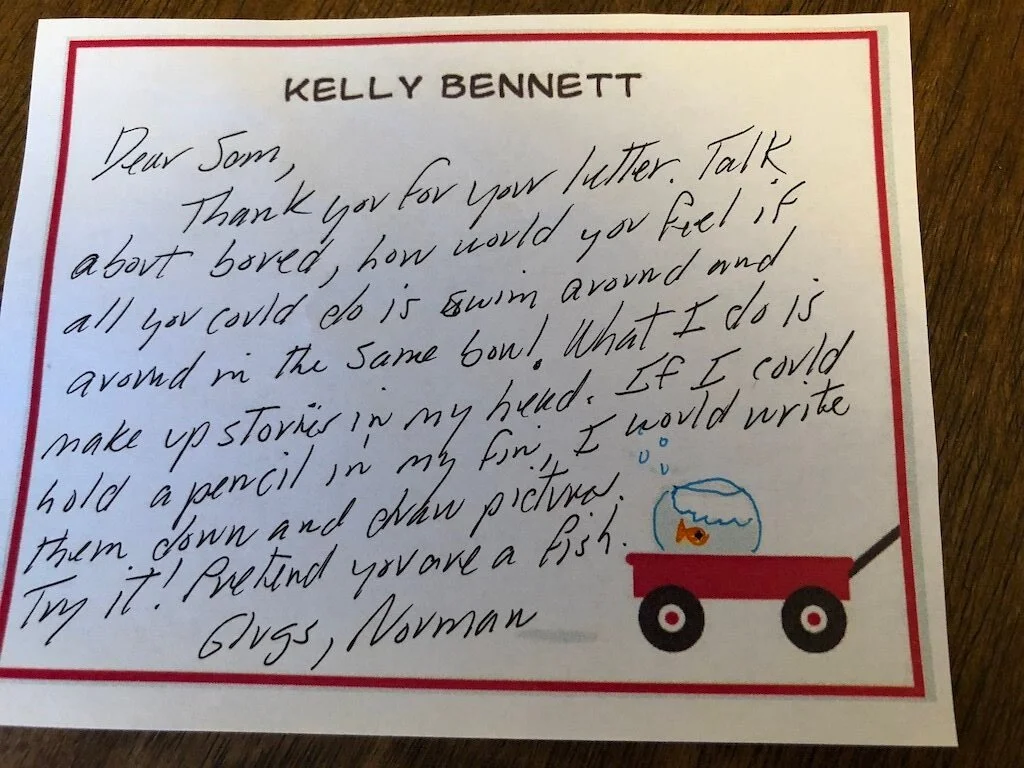 KELLY BENNETT
Dear Sam,
Thank you for your letter. Talk
about bored, how would you feel if
all you could do is swim around and
around in the same bowl. What I do is
make up stories in my head. If I could
hold a pencil in my fin, I would write
them down and draw pictures.
Try it! Pretend you are a fish.
Glugs, Norman